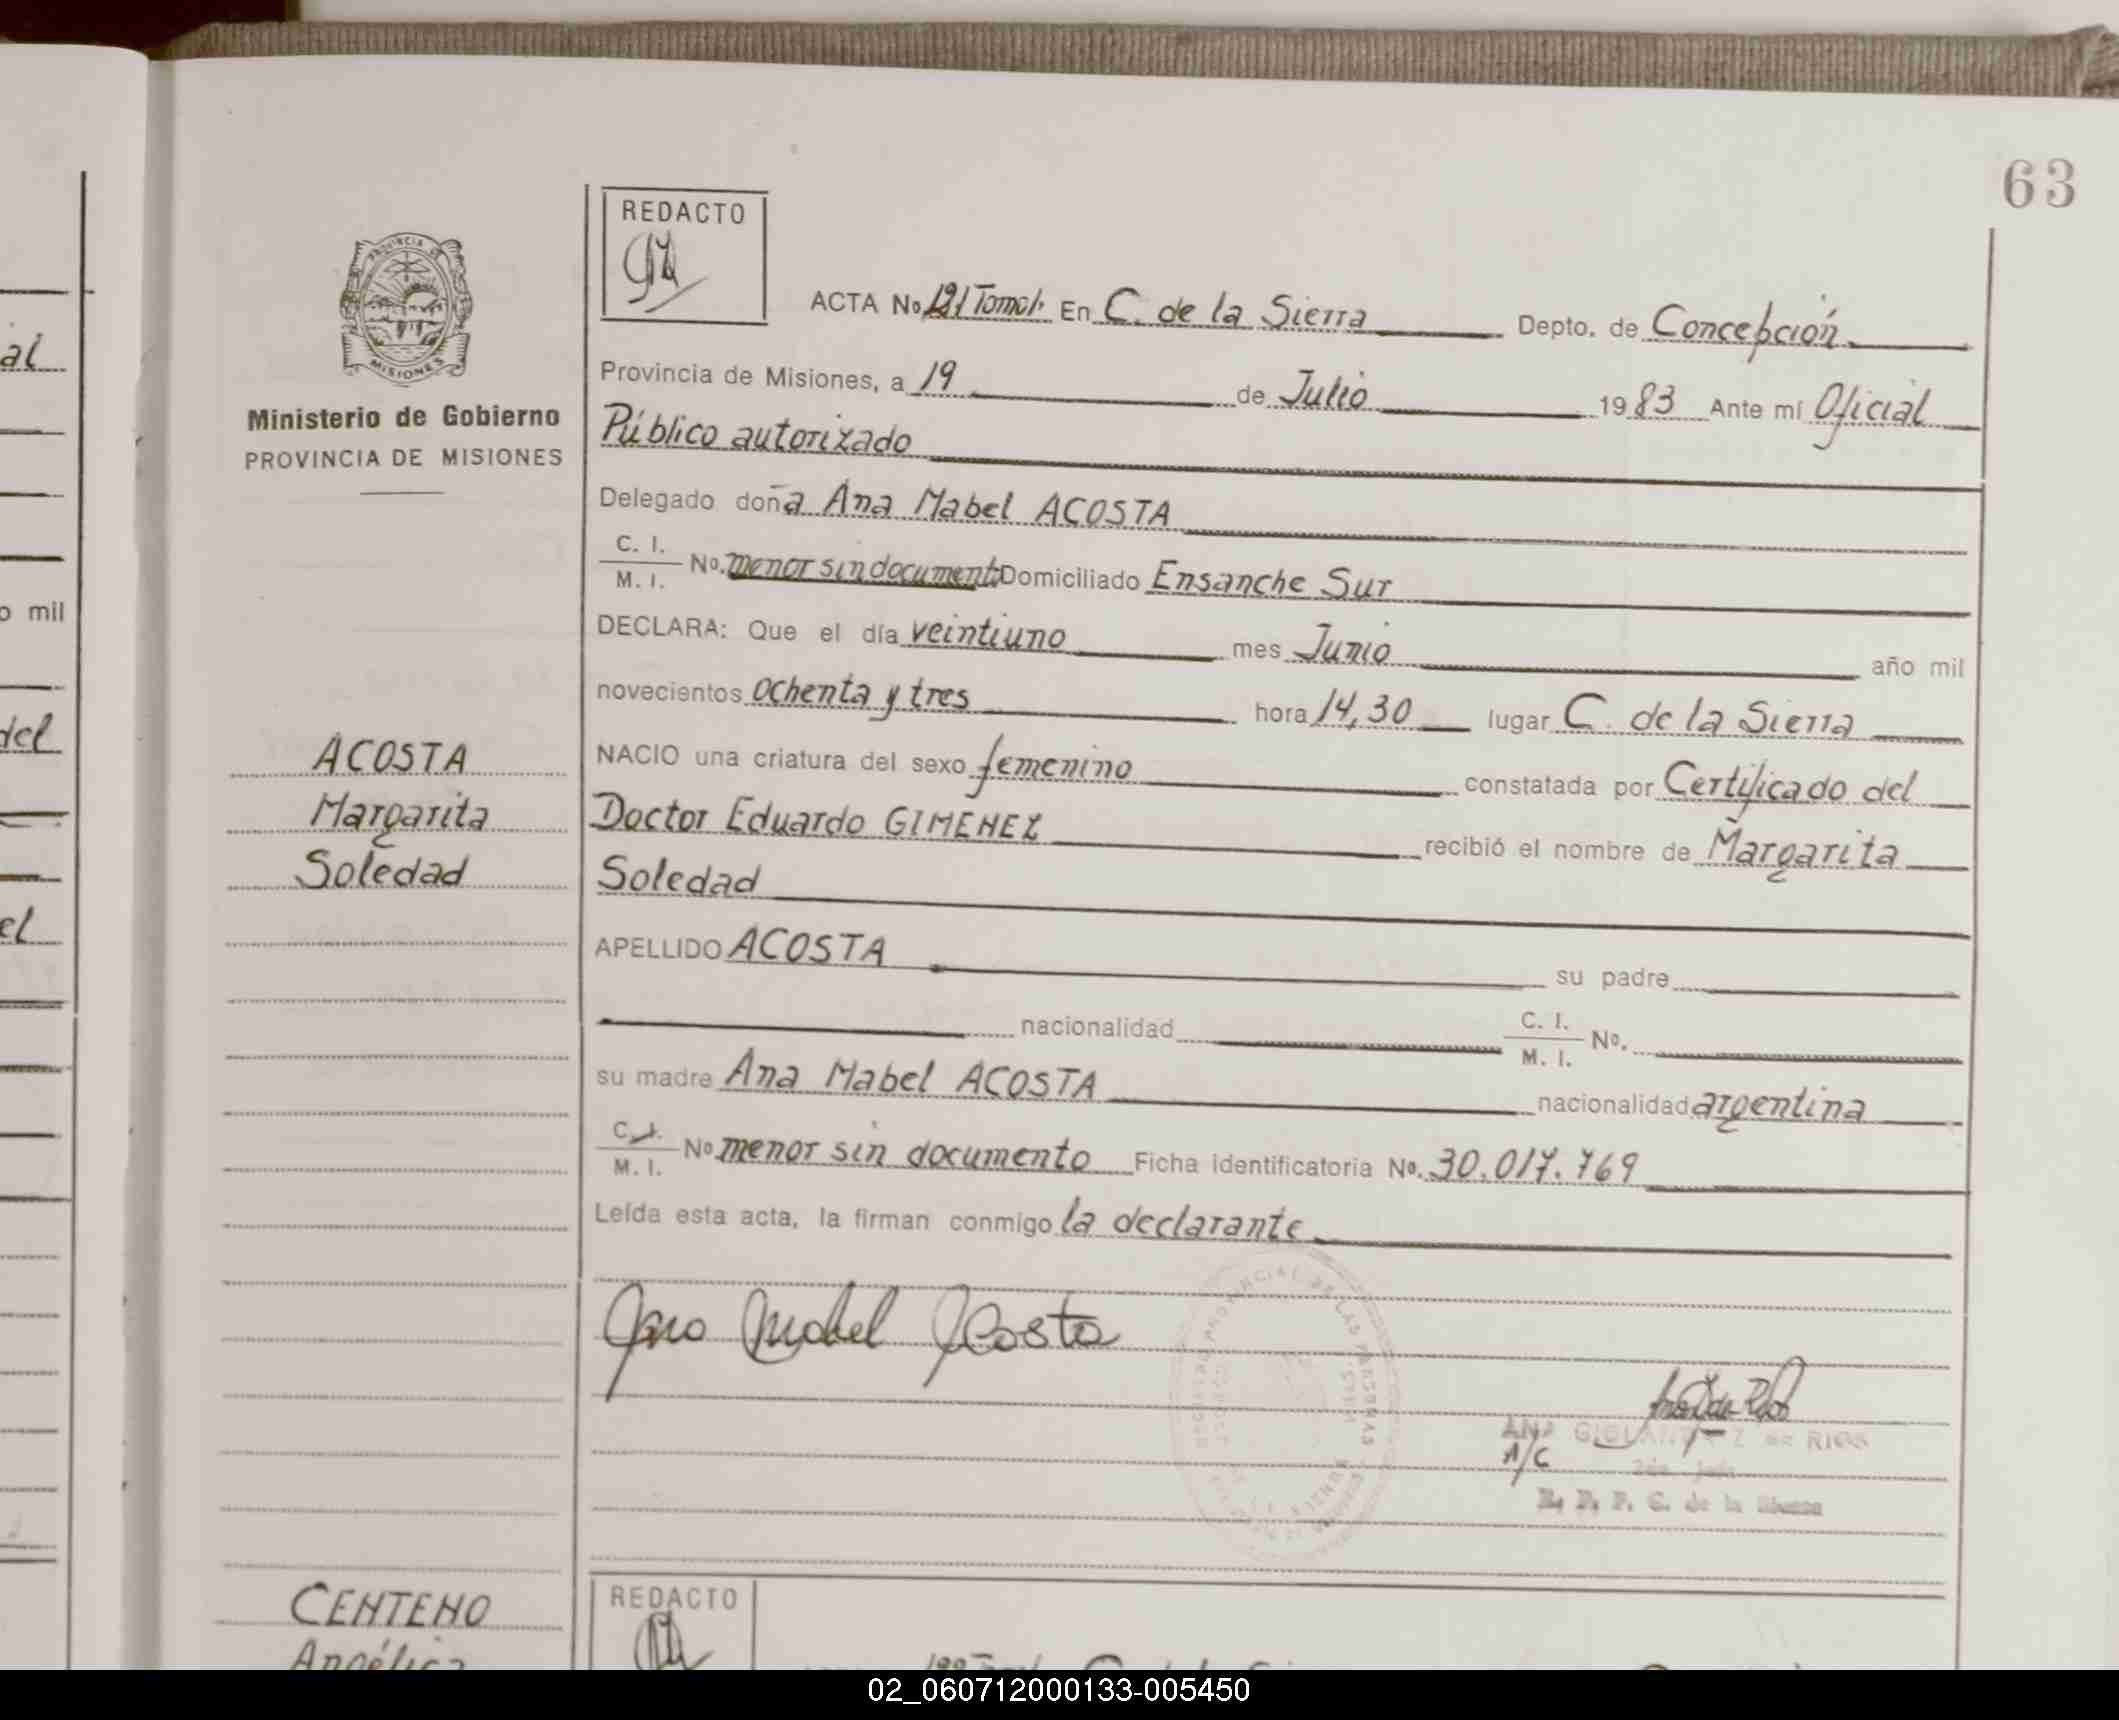 63
REDACTO
PROVINCIA DE
MISIONES
Ministerio de Gobierno
PROVINCIA DE MISIONES
ACTA No. 121 Tomo I. En C. de la Sierra Depto. de Concepción
Provincia de Misiones, a 19 de Julio 1983 Ante mí Oficial
Público autorizado
Delegado doña Ana Mabel ACOSTA
C. I.
M. I. No. menor sin documento Domiciliado Ensanche Sur
DECLARA: Que el día veintiuno mes Junio año mil
novecientos ochenta y tres hora 14,30 lugar C. de la Sierra
NACIO una criatura del sexo femenino constatada por Certificado del
Doctor Eduardo GIMENEZ recibió el nombre de Margarita
Soledad
APELLIDO ACOSTA su padre
nacionalidad C. I.
M. I. No.
su madre Ana Mabel ACOSTA nacionalidad argentina
C. I.
M. I. No menor sin documento Ficha identificatoria No. 30.017.769
Leída esta acta, la firman conmigo la declarante
Ana Mabel Acosta
ANA DE RIOS
A/C
C. de la Sierra
ACOSTA
Margarita
Soledad
CENTENO
Angélica
REDACTO
al
o mil
del
el
02_060712000133-005450